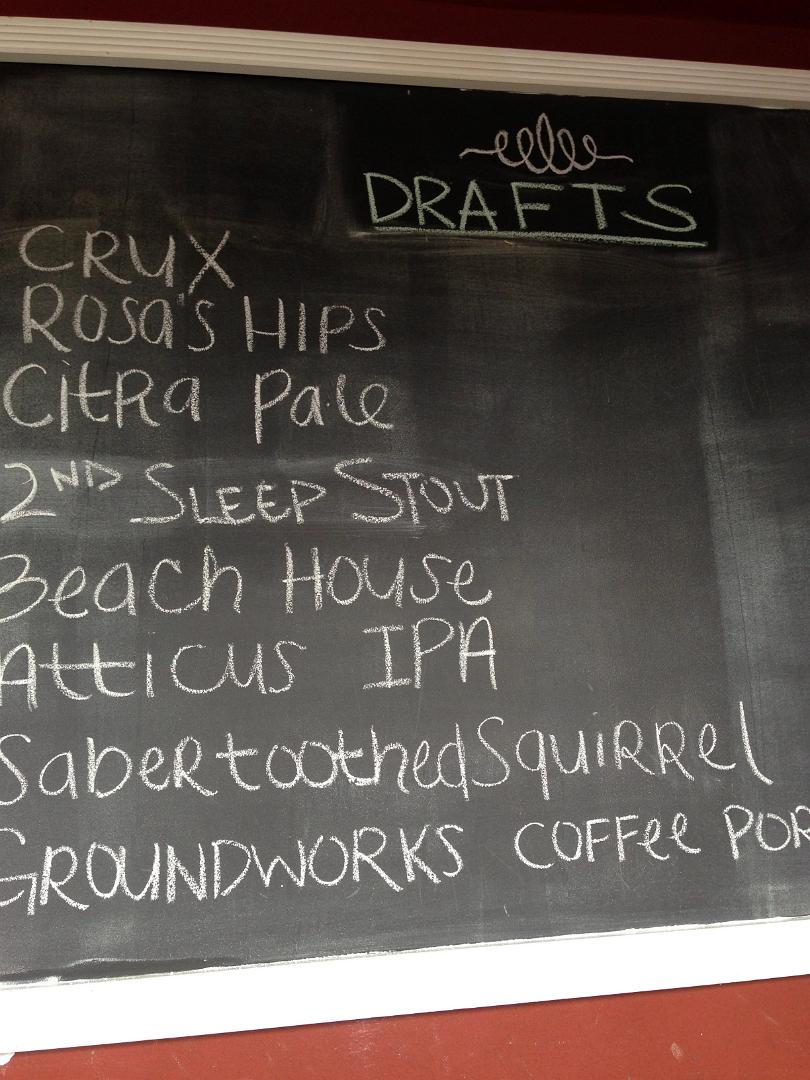 DRAFTS
CRUX
Rosa's HIPS
Citra Pale
2ND SLEEP STOUT
Beach House
Atticus IPA
Sabertoothed Squirrel
GROUNDWORKS COFFee POR